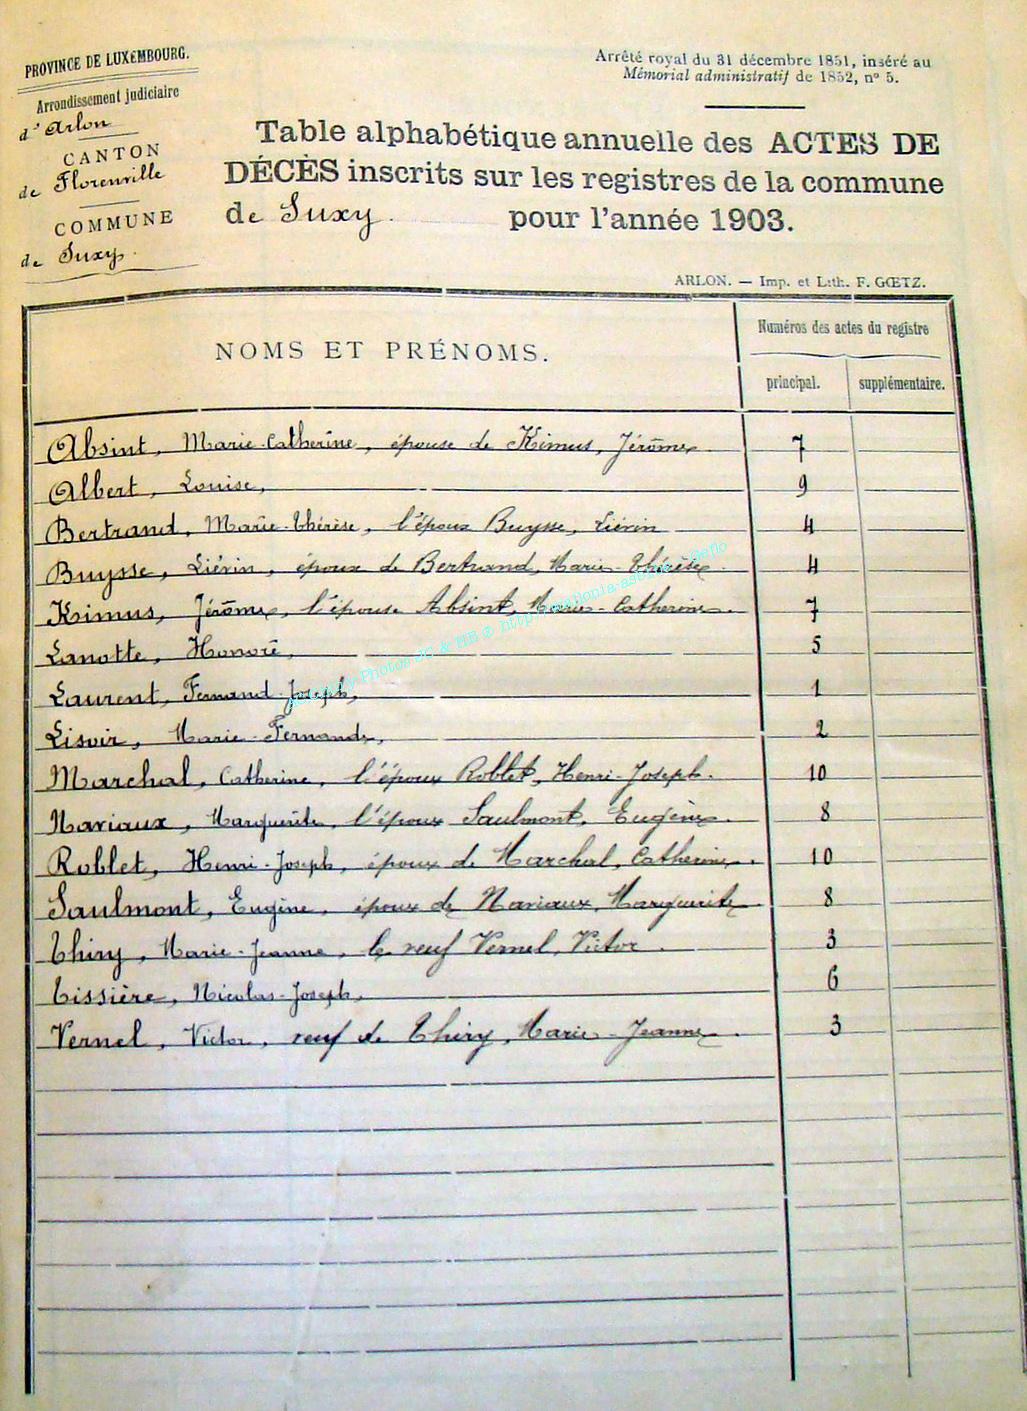 PROVINCE DE LUXEMBOURG.
Arrondissement judiciaire
d'Arlon
CANTON
de Florenville
COMMUNE
de Suxy.
Arrêté royal du 31 décembre 1851, inséré au
Mémorial administratif de 1852, nº 5.
Table alphabétique annuelle des ACTES DE
DÉCÈS inscrits sur les registres de la commune
de Suxy. pour l'année 1903.
ARLON. — Imp. et Lith. F. GŒTZ.
NOMS ET PRÉNOMS.
Numéros des actes du registre
principal. supplémentaire.
Absint, Marie-Catherine, épouse de Kimus, Jérôme. 7
Albert, Louise, 9
Bertrand, Marie-Thérèse, l'époux Buysse, Liérin 4
Buysse, Liérin, époux de Bertrand, Marie-Thérèse. 4
Kimus, Jérôme, l'épouse Absint, Marie-Catherine. 7
Lanotte, Honoré, 5
Laurent, Fernand-Joseph, 1
Lisoir, Marie-Fernande, 2
Marchal, Catherine, l'époux Roblet, Henri-Joseph. 10
Mariaux, Marguerite, l'époux Saulmont, Eugène. 8
Roblet, Henri-Joseph, époux de Marchal, Catherine. 10
Saulmont, Eugène, époux de Mariaux, Marguerite. 8
Thiry, Marie-Jeanne, le veuf Vernel, Victor. 3
Tissière, Nicolas-Joseph, 6
Vernel, Victor, veuf de Thiry, Marie-Jeanne. 3